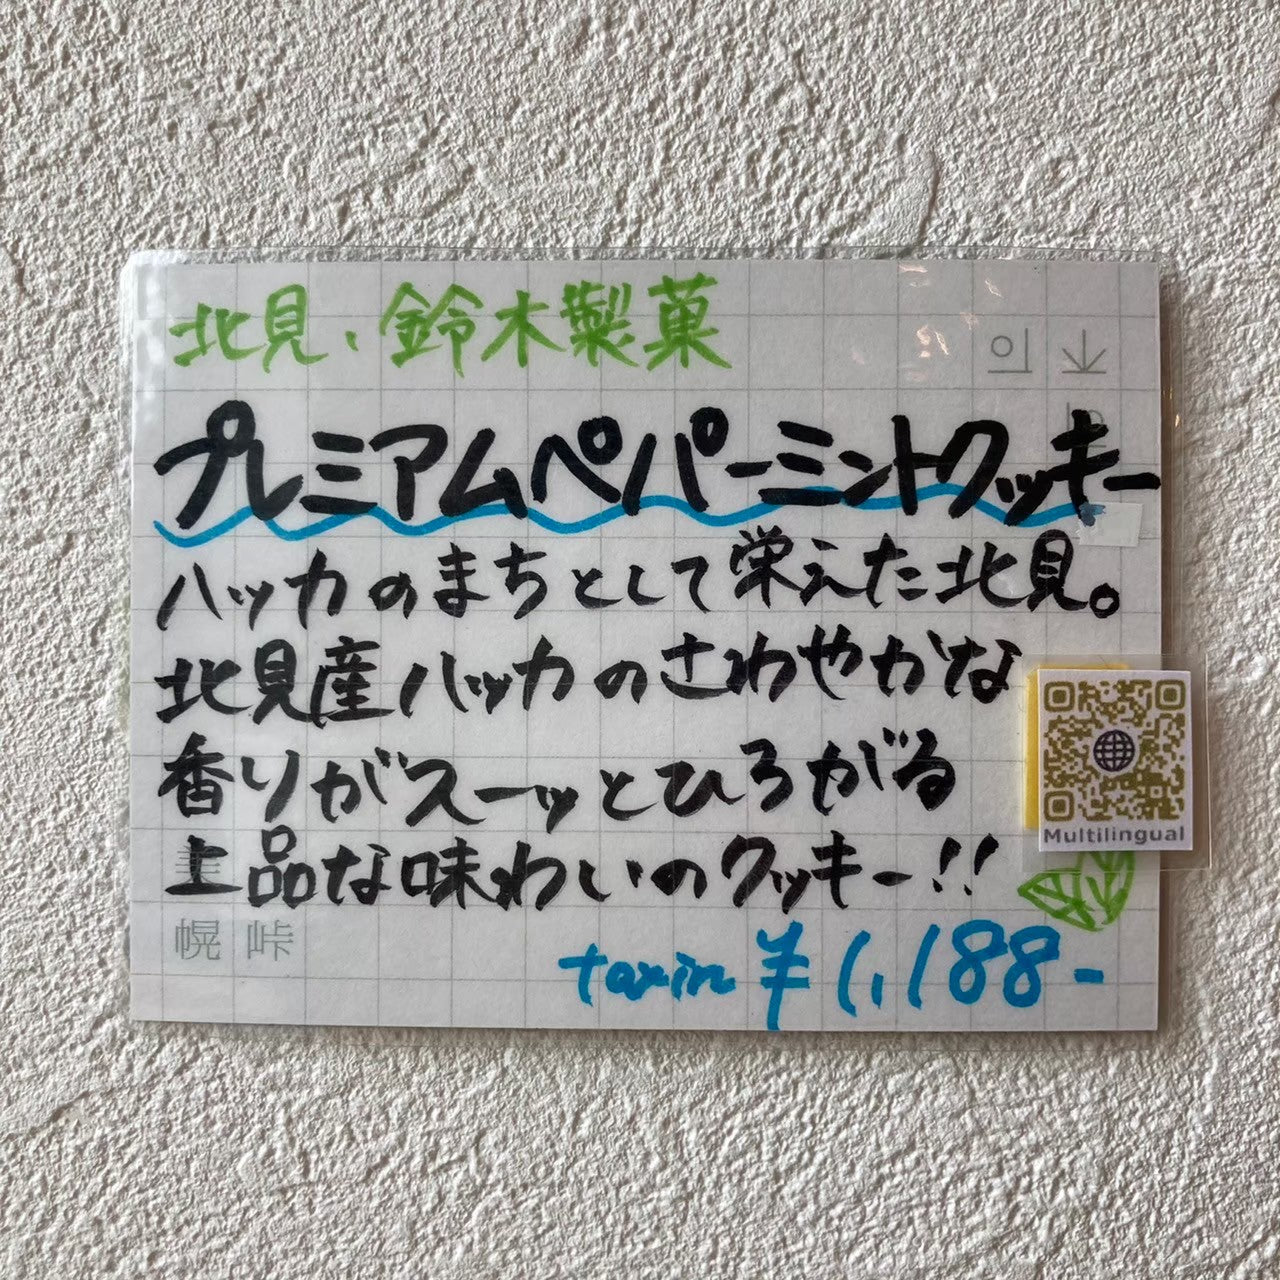 北見、鈴木製菓
プレミアムペパーミントクッキー
ハッカのまちとして栄えた北見。
北見産ハッカのさわやかな
香りがスーッとひろがる
上品な味わいのクッキー!!
Multilingual
幌 峠
taxin ¥1,188-